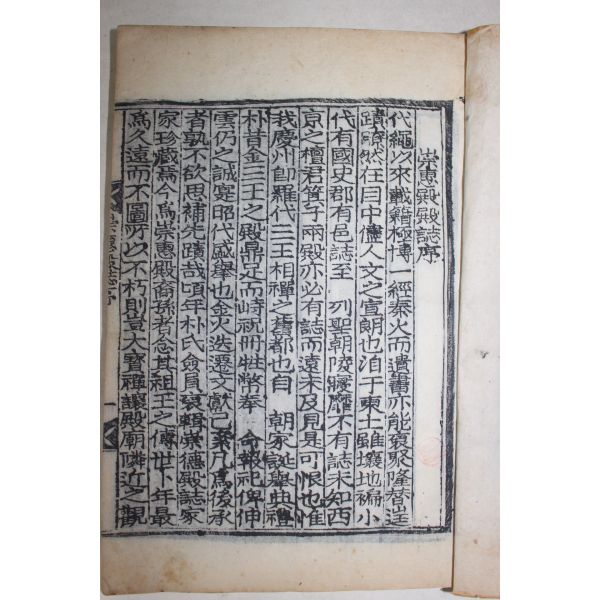 崇惠殿殿誌序
代繩以來載籍極博一經秦火而遺書亦能裒聚隆替
蹟瞭然在目中儘人文之宣朗也洎于東土雖壤地褊小
代有國史郡有邑誌至 列聖朝陵寢靡不有誌未知西
京之檀君箕子兩殿亦必有誌而遠未及見是可恨也惟
我慶州卽羅代三王相禪之舊都也自 朝家誕擧典禮
朴昔金三王之殿鼎足而峙祝冊牲幣奉 命報祀俾伸
雲仍之誠寔昭代盛擧也金火迭遷文獻已 凡爲後承
者孰不欲思補先蹟哉頃年朴氏僉員裒輯崇德殿誌家
家珍藏焉今爲崇惠殿裔孫者念其祖王之傳世卜年最
爲久遠而不圖所以不朽則豈大寶禪讓殿廟隣近之觀
崇惠殿誌序
一